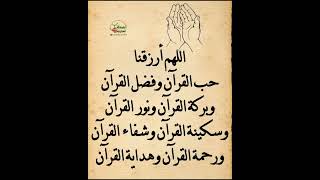 اللهم أرزقنا
حب القرآن وفضل القرآن
وبركة القرآن ونور القرآن
وسكينة القرآن وشفاء القرآن
ورحمة القرآن وهداية القرآن